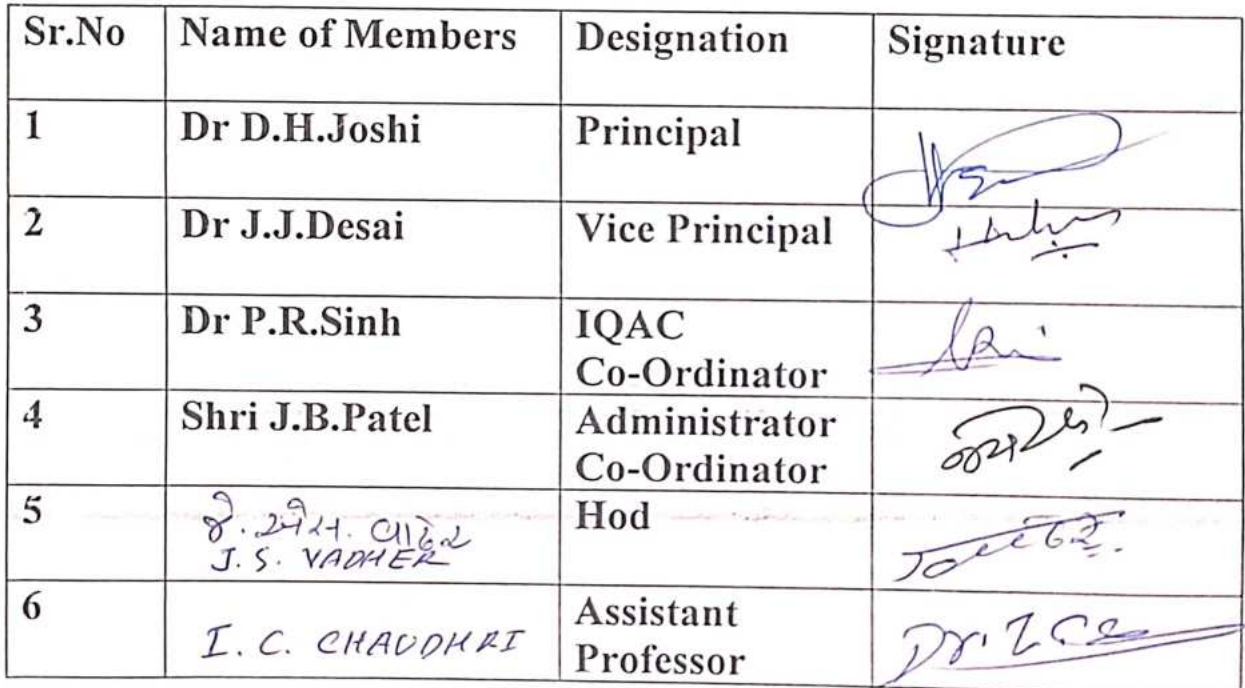 Sr.No Name of Members Designation Signature
1 Dr D.H.Joshi Principal
2 Dr J.J.Desai Vice Principal
3 Dr P.R.Sinh IQAC
Co-Ordinator
4 Shri J.B.Patel Administrator
Co-Ordinator
5 જે. એસ. વાઢેર Hod
J. S. VADHER
6 I. C. CHAUDHRI Assistant
Professor